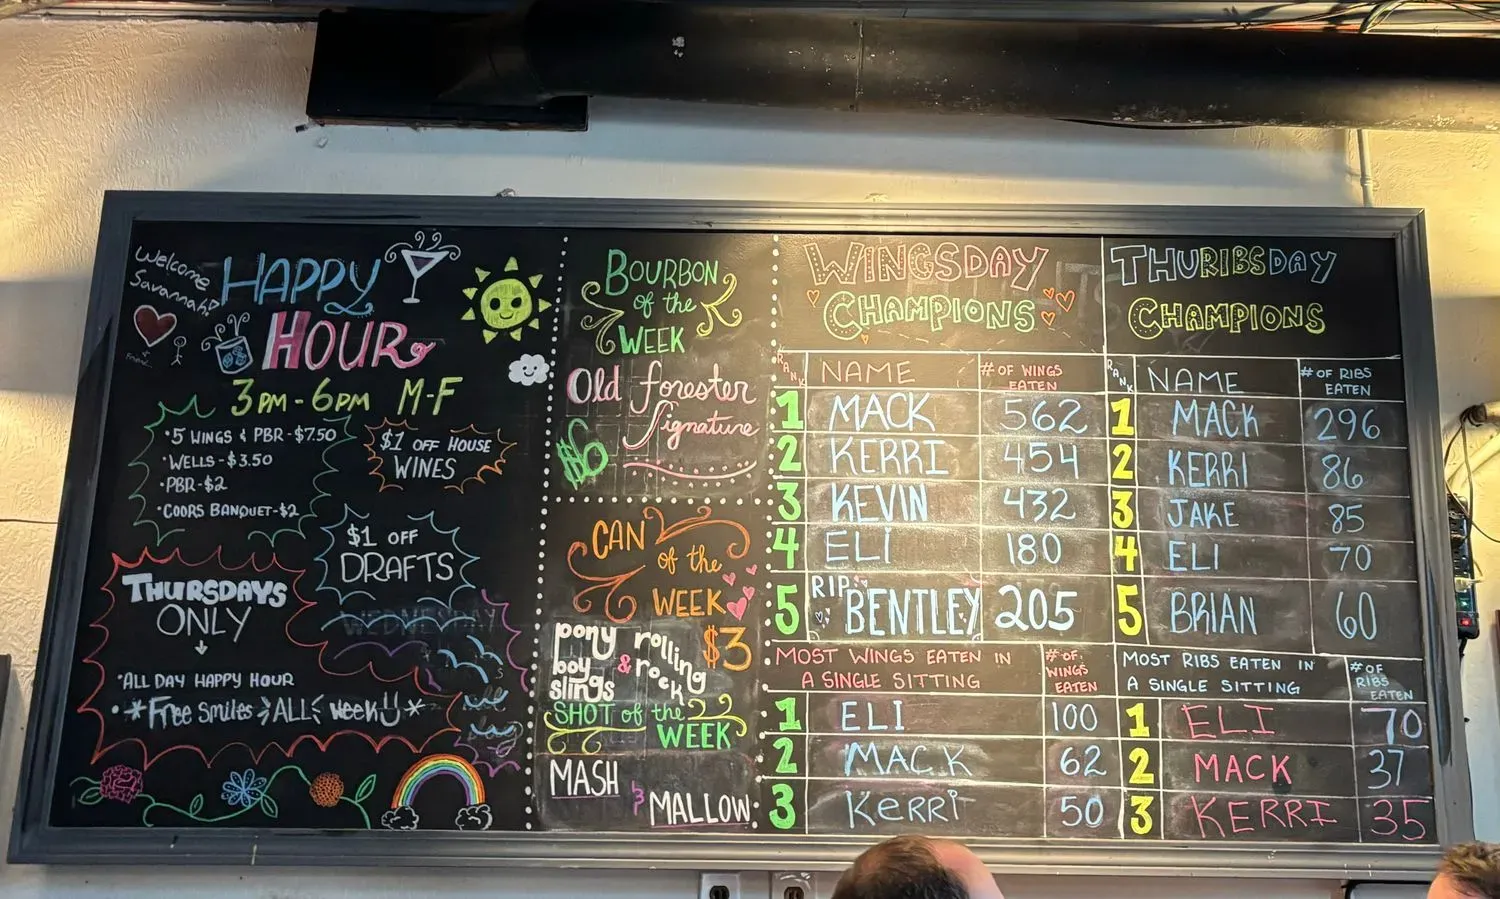 Welcome
Savannah
HAPPY
HOUR
3PM-6PM M-F
•5 WINGS & PBR-$7.50
•WELLS-$3.50
•PBR-$2
•COORS BANQUET-$2
$1 OFF HOUSE
WINES
$1 OFF
DRAFTS
THURSDAYS
ONLY
•ALL DAY HAPPY HOUR
•*Free Smiles ALL week*
WEDNESDAY
BOURBON
of the
WEEK
Old forester
Signature
$6
CAN
of the
WEEK
$3
pony
boy
slings
&
rolling
rock
SHOT of the
WEEK
MASH
&
MALLOW
WINGSDAY
CHAMPIONS
RANK NAME # OF WINGS EATEN
1 MACK 562
2 KERRI 454
3 KEVIN 432
4 ELI 180
5 RIP BENTLEY 205
MOST WINGS EATEN IN
A SINGLE SITTING
# OF WINGS EATEN
1 ELI 100
2 MACK 62
3 KERRI 50
THURIBSDAY
CHAMPIONS
RANK NAME # OF RIBS EATEN
1 MACK 296
2 KERRI 86
3 JAKE 85
4 ELI 70
5 BRIAN 60
MOST RIBS EATEN IN
A SINGLE SITTING
# OF RIBS EATEN
1 ELI 70
2 MACK 37
3 KERRI 35